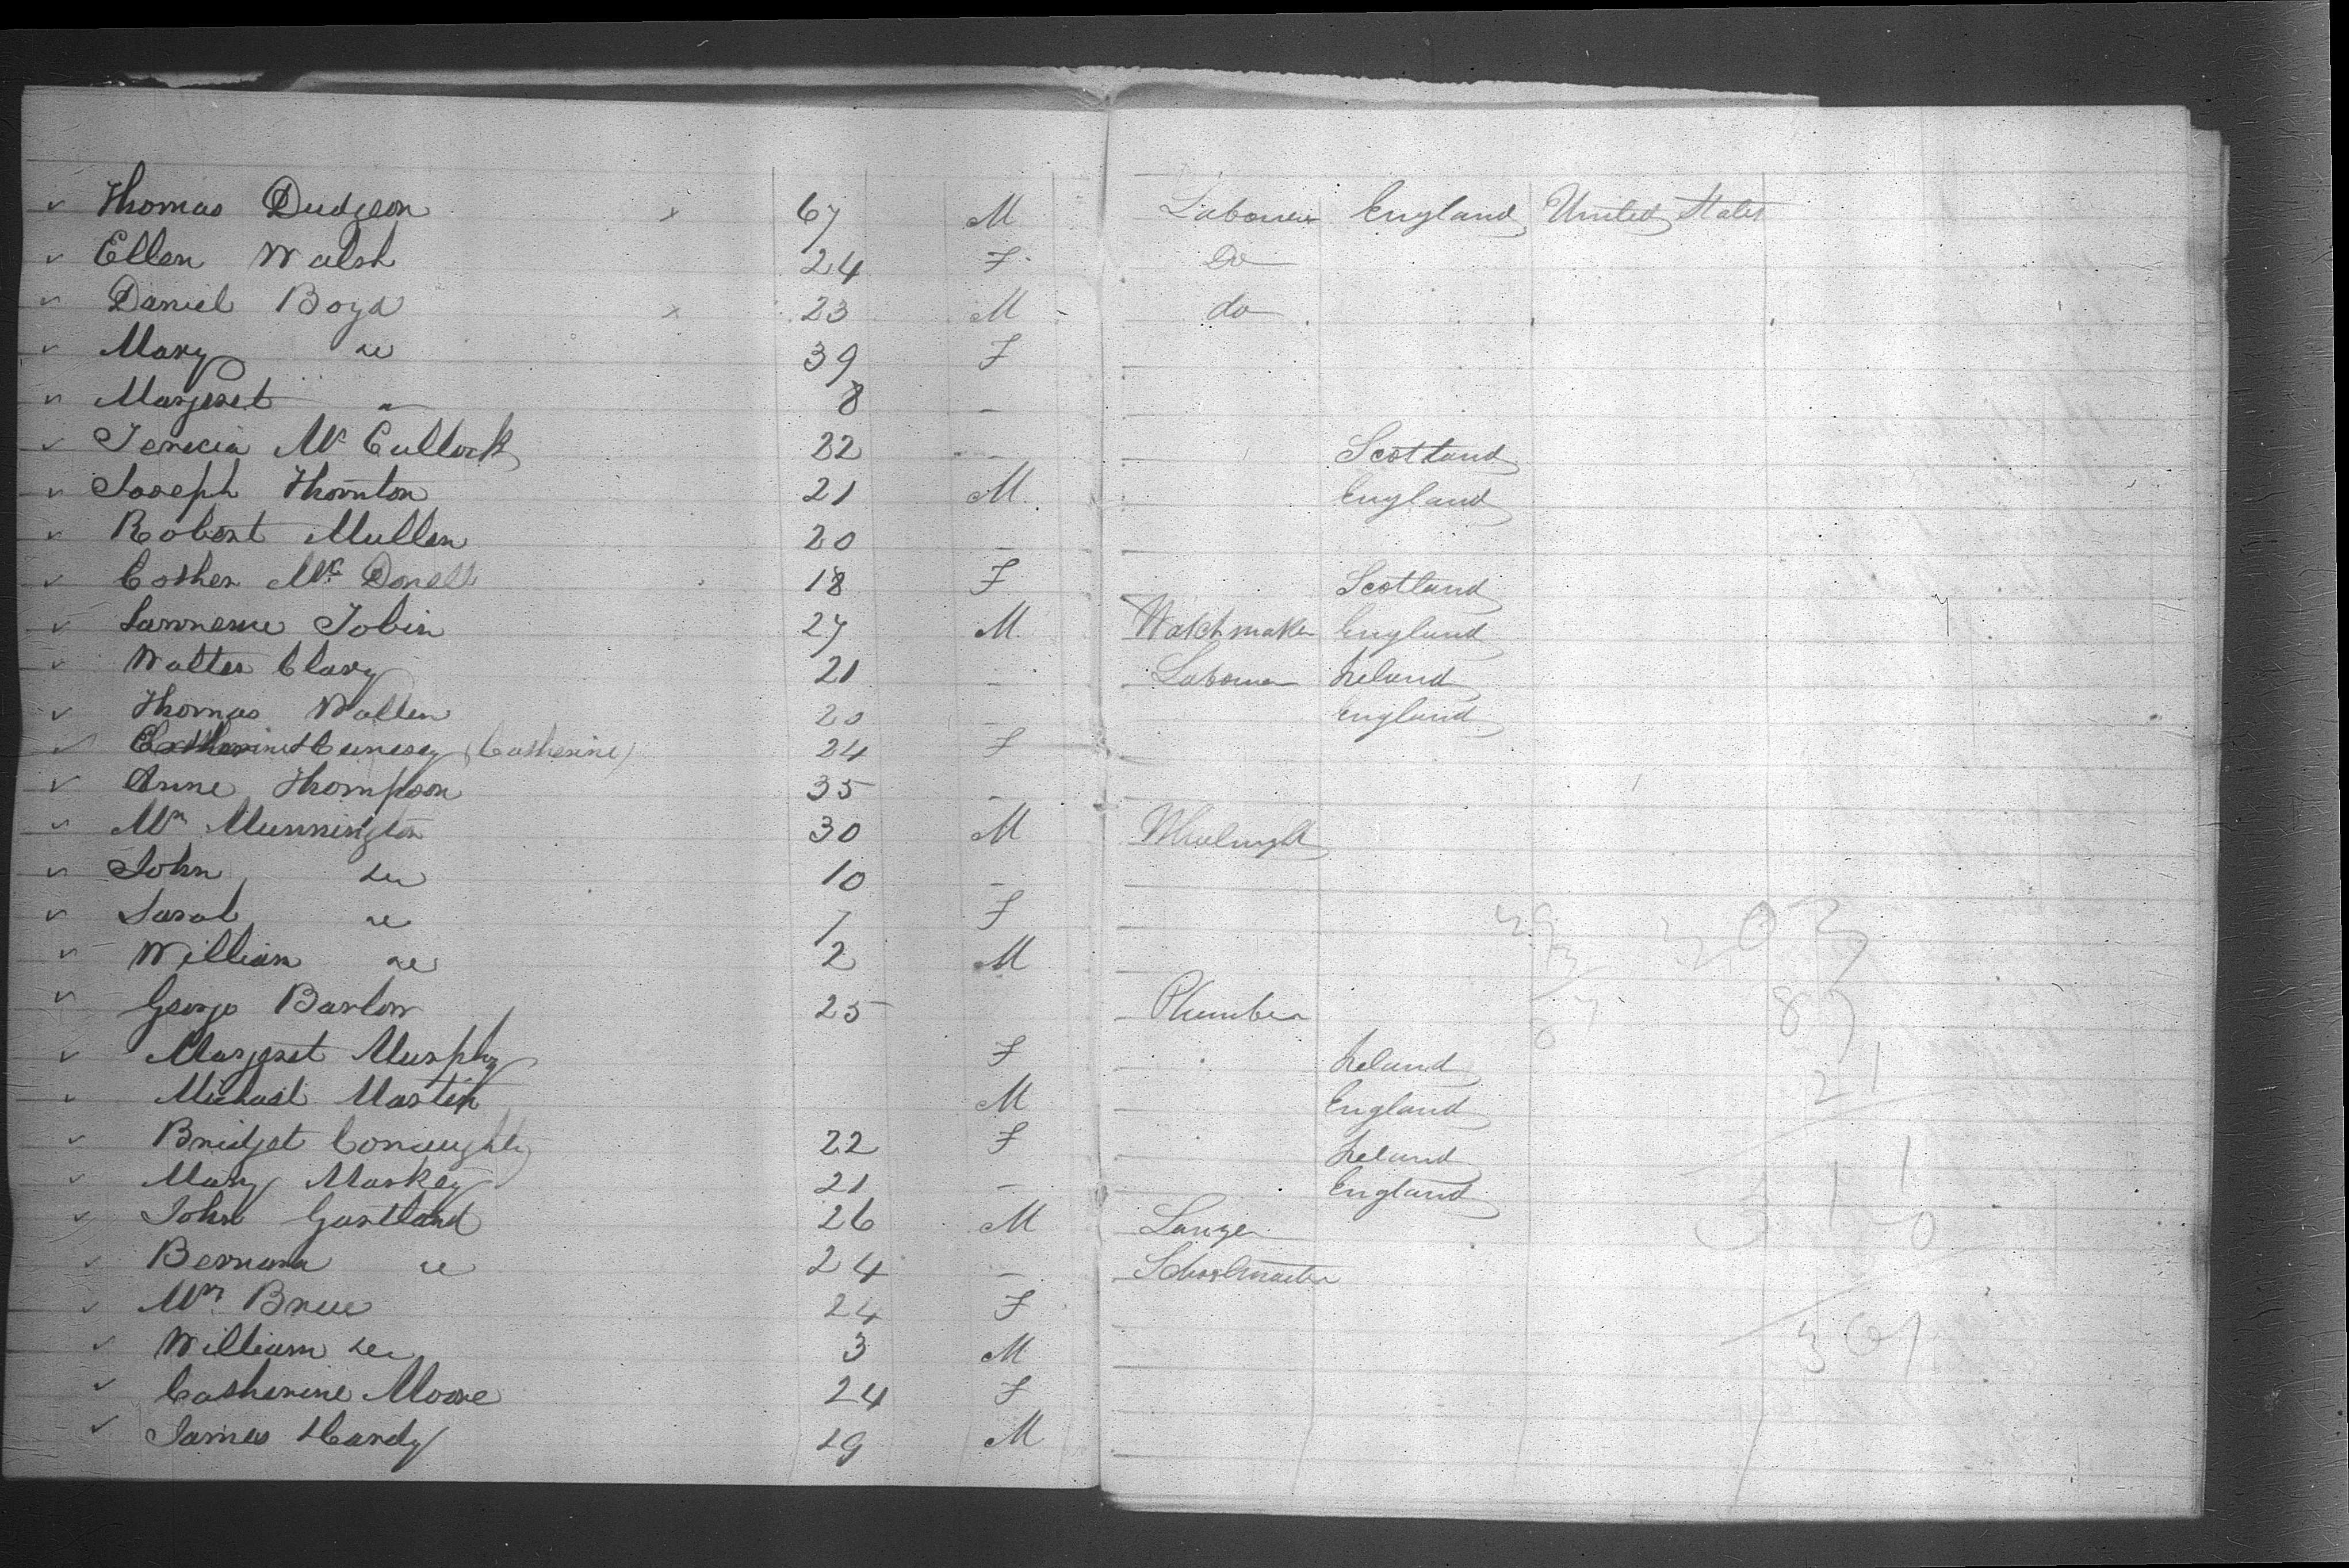 Thomas Dudgeon x 67 M Labourer England United States
Ellen Walsh 24 F Do
Daniel Boyd x 23 M do
Mary do 39 F
Margeret " 8 -
Terecia McCullock 22 - Scotland
Joseph Thornton 21 M England
Robert Mullen 20 -
Esther McDonell 18 F Scotland
Lawrence Tobin 27 M Watchmaker England
Walter Clary 21 - Labourer Ireland
Thomas Wallen 20 - England
(Catherine) 24 F
Anne Thompson 35 -
Wm Munnington 30 M Wheelwright
John do 10 -
Sarah do 7 F
William do 2 M
George Barlow 25 Plumber
Margeret Murphy F Ireland
Michael Martin M England
Bridget Conaughty 22 F Ireland
Mary Maskey 21 - England
John Gartland 26 M
Bernard do 24 - Schoolmaster
Mrs Brue 24 F
William do 3 M
Catherine Moore 24 F
James Handy 19 M
303
87
21
361